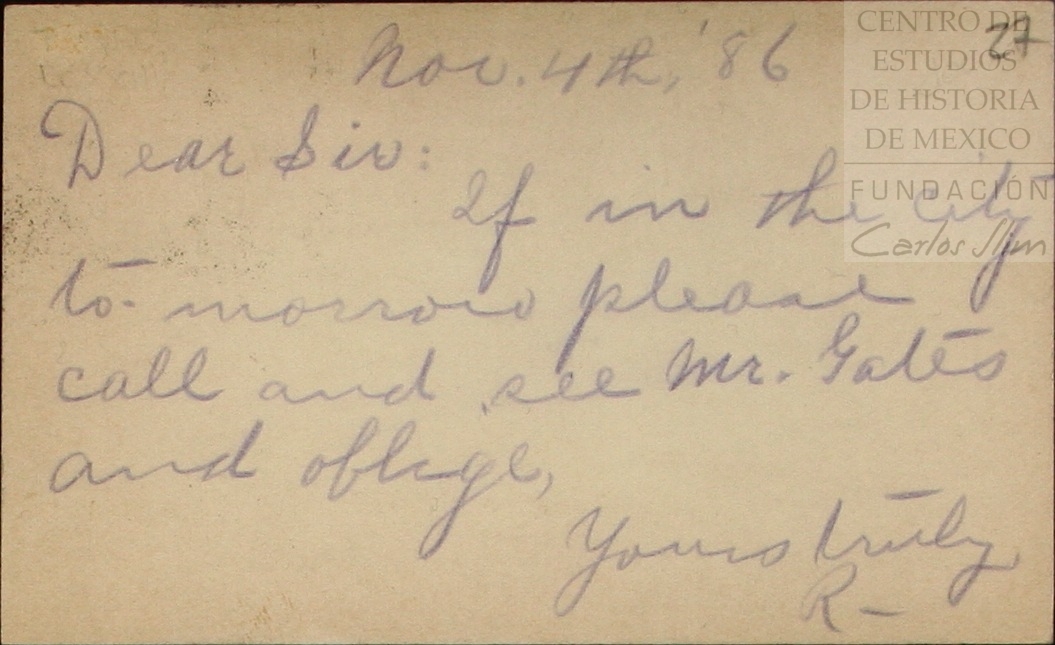 CENTRO DE
ESTUDIOS
DE HISTORIA
DE MEXICO
FUNDACIÓN
Carlos Slim
27
Nov. 4th, '86
Dear Sir:
If in the city
to-morrow please
call and see Mr. Gates
and oblige,
Yours truly
R-